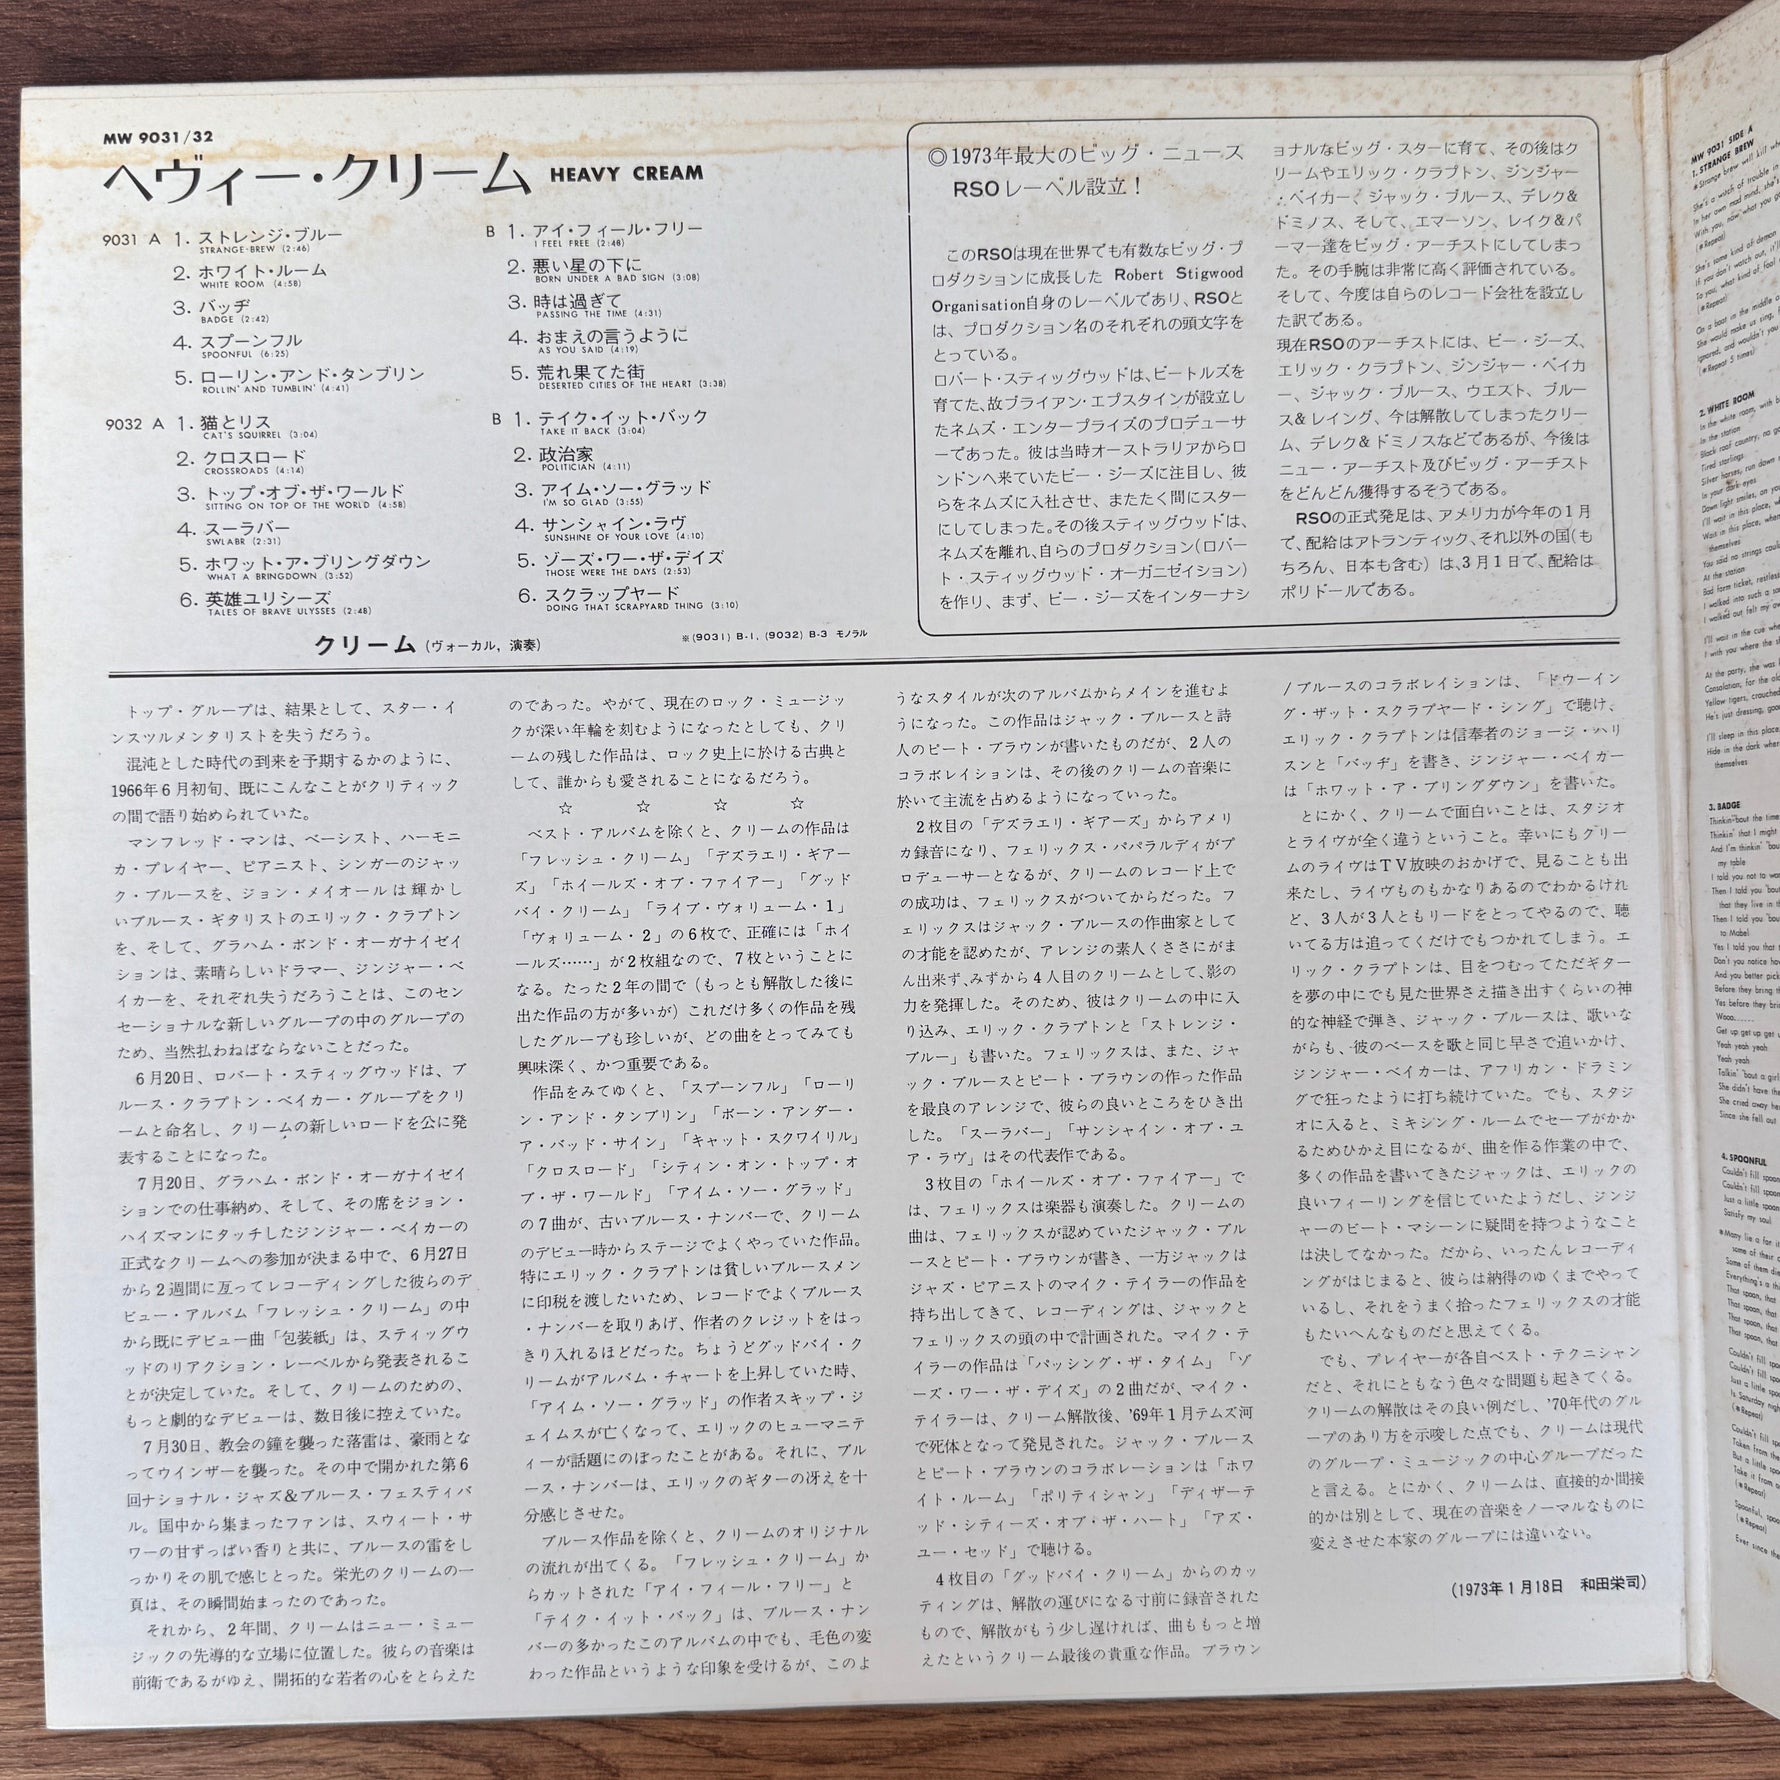 MW 9031/32
ヘヴィー・クリーム HEAVY CREAM
9031 A 1. ストレンジ・ブルー
STRANGE BREW (2:46)
2. ホワイト・ルーム
WHITE ROOM (4:58)
3. バッヂ
BADGE (2:42)
4. スプーンフル
SPOONFUL (6:25)
5. ローリン・アンド・タンブリン
ROLLIN' AND TUMBLIN' (4:41)
B 1. アイ・フィール・フリー
I FEEL FREE (2:48)
2. 悪い星の下に
BORN UNDER A BAD SIGN (3:08)
3. 時は過ぎて
PASSING THE TIME (4:31)
4. おまえの言うように
AS YOU SAID (4:19)
5. 荒れ果てた街
DESERTED CITIES OF THE HEART (3:38)
9032 A 1. 猫とリス
CAT'S SQUIRREL (3:04)
2. クロスロード
CROSSROADS (4:14)
3. トップ・オブ・ザ・ワールド
SITTING ON TOP OF THE WORLD (4:58)
4. スーラバー
SWLABR (2:31)
5. ホワット・ア・ブリングダウン
WHAT A BRINGDOWN (3:52)
6. 英雄ユリシーズ
TALES OF BRAVE ULYSSES (2:48)
B 1. テイク・イット・バック
TAKE IT BACK (3:04)
2. 政治家
POLITICIAN (4:11)
3. アイム・ソー・グラッド
I'M SO GLAD (3:55)
4. サンシャイン・ラヴ
SUNSHINE OF YOUR LOVE (4:10)
5. ゾーズ・ワー・ザ・デイズ
THOSE WERE THE DAYS (2:53)
6. スクラップヤード
DOING THAT SCRAPYARD THING (3:10)
クリーム(ヴォーカル, 演奏)
※(9031) B-1, (9032) B-3 モノラル
◎1973年最大のビッグ・ニュース
RSOレーベル設立!
このRSOは現在世界でも有数なビッグ・プ
ロダクションに成長した Robert Stigwood
Organisation自身のレーベルであり、RSOと
は、プロダクション名のそれぞれの頭文字を
とっている。
ロバート・スティッグウッドは、ビートルズを
育てた、故ブライアン・エプスタインが設立し
たネムズ・エンタープライズのプロデューサ
ーであった。彼は当時オーストラリアからロ
ンドンへ来ていたビー・ジーズに注目し、彼
らをネムズに入社させ、またたく間にスター
にしてしまった。その後スティッグウッドは、
ネムズを離れ、自らのプロダクション(ロバー
ト・スティッグウッド・オーガニゼイション)
を作り、まず、ビー・ジーズをインターナシ
ョナルなビッグ・スターに育て、その後はク
リームやエリック・クラプトン、ジンジャー
・ベイカー、ジャック・ブルース、デレク&
ドミノス、そして、エマーソン、レイク&パ
ーマー達をビッグ・アーチストにしてしまっ
た。その手腕は非常に高く評価されている。
そして、今度は自らのレコード会社を設立し
た訳である。
現在RSOのアーチストには、ビー・ジーズ、
エリック・クラプトン、ジンジャー・ベイカ
ー、ジャック・ブルース、ウエスト、ブルー
ス&レイング、今は解散してしまったクリー
ム、デレク&ドミノスなどであるが、今後は
ニュー・アーチスト及びビッグ・アーチスト
をどんどん獲得するそうである。
RSOの正式発足は、アメリカが今年の1月
で、配給はアトランティック、それ以外の国(も
ちろん、日本も含む)は、3月1日で、配給は
ポリドールである。
トップ・グループは、結果として、スター・イ
ンスツルメンタリストを失うだろう。
混沌とした時代の到来を予期するかのように、
1966年6月初旬、既にこんなことがクリティック
の間で語り始められていた。
マンフレッド・マンは、ベーシスト、ハーモニ
カ・プレイヤー、ピアニスト、シンガーのジャッ
ク・ブルースを、ジョン・メイオールは輝かし
いブルース・ギタリストのエリック・クラプトン
を、そして、グラハム・ボンド・オーガナイゼイ
ションは、素晴らしいドラマー、ジンジャー・ベ
イカーを、それぞれ失うだろうことは、このセン
セーショナルな新しいグループの中のグループの
ため、当然払わねばならないことだった。
6月20日、ロバート・スティッグウッドは、ブ
ルース・クラプトン・ベイカー・グループをクリ
ームと命名し、クリームの新しいロードを公に発
表することになった。
7月20日、グラハム・ボンド・オーガナイゼイ
ションでの仕事納め、そして、その席をジョン・
ハイズマンにタッチしたジンジャー・ベイカーの
正式なクリームへの参加が決まる中で、6月27日
から2週間に亙ってレコーディングした彼らのデ
ビュー・アルバム「フレッシュ・クリーム」の中
から既にデビュー曲「包装紙」は、スティッグウ
ッドのリアクション・レーベルから発表されるこ
とが決定していた。そして、クリームのための、
もっと劇的なデビューは、数日後に控えていた。
7月30日、教会の鐘を襲った落雷は、豪雨とな
ってウインザーを襲った。その中で開かれた第6
回ナショナル・ジャズ&ブルース・フェスティバ
ル。国中から集まったファンは、スウィート・サ
ワーの甘ずっぱい香りと共に、ブルースの雷をし
っかりその肌で感じとった。栄光のクリームの一
頁は、その瞬間始まったのであった。
それから、2年間、クリームはニュー・ミュー
ジックの先導的な立場に位置した。彼らの音楽は
前衛であるがゆえ、開拓的な若者の心をとらえた
のであった。やがて、現在のロック・ミュージッ
クが深い年輪を刻むようになったとしても、クリ
ームの残した作品は、ロック史上に於ける古典と
して、誰からも愛されることになるだろう。
☆ ☆ ☆ ☆
ベスト・アルバムを除くと、クリームの作品は
「フレッシュ・クリーム」「デズラエリ・ギアー
ズ」「ホイールズ・オブ・ファイアー」「グッド
バイ・クリーム」「ライブ・ヴォリューム・1」
「ヴォリューム・2」の6枚で、正確には「ホイ
ールズ……」が2枚組なので、7枚ということに
なる。たった2年の間で(もっとも解散した後に
出た作品の方が多いが)これだけ多くの作品を残
したグループも珍しいが、どの曲をとってみても
興味深く、かつ重要である。
作品をみてゆくと、「スプーンフル」「ローリ
ン・アンド・タンブリン」「ボーン・アンダー・
ア・バッド・サイン」「キャット・スクワイリル」
「クロスロード」「シティン・オン・トップ・オ
ブ・ザ・ワールド」「アイム・ソー・グラッド」
の7曲が、古いブルース・ナンバーで、クリーム
のデビュー時からステージでよくやっていた作品。
特にエリック・クラプトンは貧しいブルースメン
に印税を渡したいため、レコードでよくブルース
・ナンバーを取りあげ、作者のクレジットをはっ
きり入れるほどだった。ちょうどグッドバイ・ク
リームがアルバム・チャートを上昇していた時、
「アイム・ソー・グラッド」の作者スキップ・ジ
ェイムスが亡くなって、エリックのヒューマニテ
ィーが話題にのぼったことがある。それに、ブル
ース・ナンバーは、エリックのギターの冴えを十
分感じさせた。
ブルース作品を除くと、クリームのオリジナル
の流れが出てくる。「フレッシュ・クリーム」か
らカットされた「アイ・フィール・フリー」と
「テイク・イット・バック」は、ブルース・ナン
バーの多かったこのアルバムの中でも、毛色の変
わった作品というような印象を受けるが、このよ
うなスタイルが次のアルバムからメインを進むよ
うになった。この作品はジャック・ブルースと詩
人のピート・ブラウンが書いたものだが、2人の
コラボレイションは、その後のクリームの音楽に
於いて主流を占めるようになっていった。
2枚目の「デズラエリ・ギアーズ」からアメリ
カ録音になり、フェリックス・パパラルディがプ
ロデューサーとなるが、クリームのレコード上で
の成功は、フェリックスがついてからだった。フ
ェリックスはジャック・ブルースの作曲家として
の才能を認めたが、アレンジの素人くささにがま
ん出来ず、みずから4人目のクリームとして、影の
力を発揮した。そのため、彼はクリームの中に入
り込み、エリック・クラプトンと「ストレンジ・
ブルー」も書いた。フェリックスは、また、ジャ
ック・ブルースとピート・ブラウンの作った作品
を最良のアレンジで、彼らの良いところをひき出
した。「スーラバー」「サンシャイン・オブ・ユ
ア・ラヴ」はその代表作である。
3枚目の「ホイールズ・オブ・ファイアー」で
は、フェリックスは楽器も演奏した。クリームの
曲は、フェリックスが認めていたジャック・ブル
ースとピート・ブラウンが書き、一方ジャックは
ジャズ・ピアニストのマイク・テイラーの作品を
持ち出してきて、レコーディングは、ジャックと
フェリックスの頭の中で計画された。マイク・テ
イラーの作品は「パッシング・ザ・タイム」「ゾ
ーズ・ワー・ザ・デイズ」の2曲だが、マイク・
テイラーは、クリーム解散後、'69年1月テムズ河
で死体となって発見された。ジャック・ブルース
とピート・ブラウンのコラボレーションは「ホワ
イト・ルーム」「ポリティシャン」「ディザーテ
ッド・シティーズ・オブ・ザ・ハート」「アズ・
ユー・セッド」で聴ける。
4枚目の「グッドバイ・クリーム」からのカッ
ティングは、解散の運びになる寸前に録音された
もので、解散がもう少し遅ければ、曲ももっと増
えたというクリーム最後の貴重な作品。ブラウン
/ブルースのコラボレイションは、「ドウーイン
グ・ザット・スクラブヤード・シング」で聴け、
エリック・クラプトンは信奉者のジョージ・ハリ
スンと「バッヂ」を書き、ジンジャー・ベイカー
は「ホワット・ア・ブリングダウン」を書いた。
とにかく、クリームで面白いことは、スタジオ
とライヴが全く違うということ。幸いにもクリー
ムのライヴはTV放映のおかげで、見ることも出
来たし、ライヴものもかなりあるのでわかるけれ
ど、3人が3人ともリードをとってやるので、聴
いてる方は追ってくだけでもつかれてしまう。エ
リック・クラプトンは、目をつむってただギター
を夢の中にでも見た世界さえ描き出すくらいの神
的な神経で弾き、ジャック・ブルースは、歌いな
がらも、彼のベースを歌と同じ早さで追いかけ、
ジンジャー・ベイカーは、アフリカン・ドラミン
グで狂ったように打ち続けていた。でも、スタジ
オに入ると、ミキシング・ルームでセーブがかか
るためひかえ目になるが、曲を作る作業の中で、
多くの作品を書いてきたジャックは、エリックの
良いフィーリングを信じていたようだし、ジンジ
ャーのビート・マシーンに疑問を持つようなこと
は決してなかった。だから、いったんレコーディ
ングがはじまると、彼らは納得のゆくまでやって
いるし、それをうまく拾ったフェリックスの才能
もたいへんなものだと思えてくる。
でも、プレイヤーが各自ベスト・テクニシャン
だと、それにともなう色々な問題も起きてくる。
クリームの解散はその良い例だし、'70年代のグル
ープのあり方を示唆した点でも、クリームは現代
のグループ・ミュージックの中心グループだった
と言える。とにかく、クリームは、直接的か間接
的かは別として、現在の音楽をノーマルなものに
変えさせた本家のグループには違いない。
(1973年1月18日 和田栄司)
MW 9031 SIDE A
1. STRANGE BREW
2. WHITE ROOM
In the station
Tired starlings
themselves
At the station
themselves
3. BADGE
my table
to Mabel
Wooo......
Yeah yeah yeah
Yeah yeah
4. SPOONFUL
Satisfy my soul
(※Repeat)
(※Repeat)
(※Repeat)